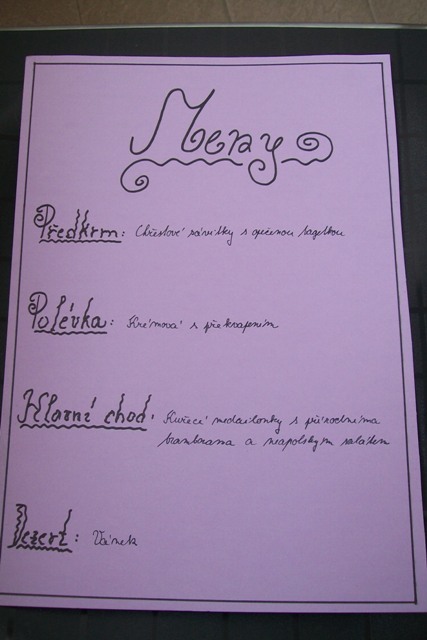 Meny
Předkrm: Chřestové závitky s opečenou bagetkou
Polévka: Krémová s překvapením
Hlavní chod: Kuřecí medailonky s přírodníma
bramborama a neapolským salátem
Dezert: Vánek